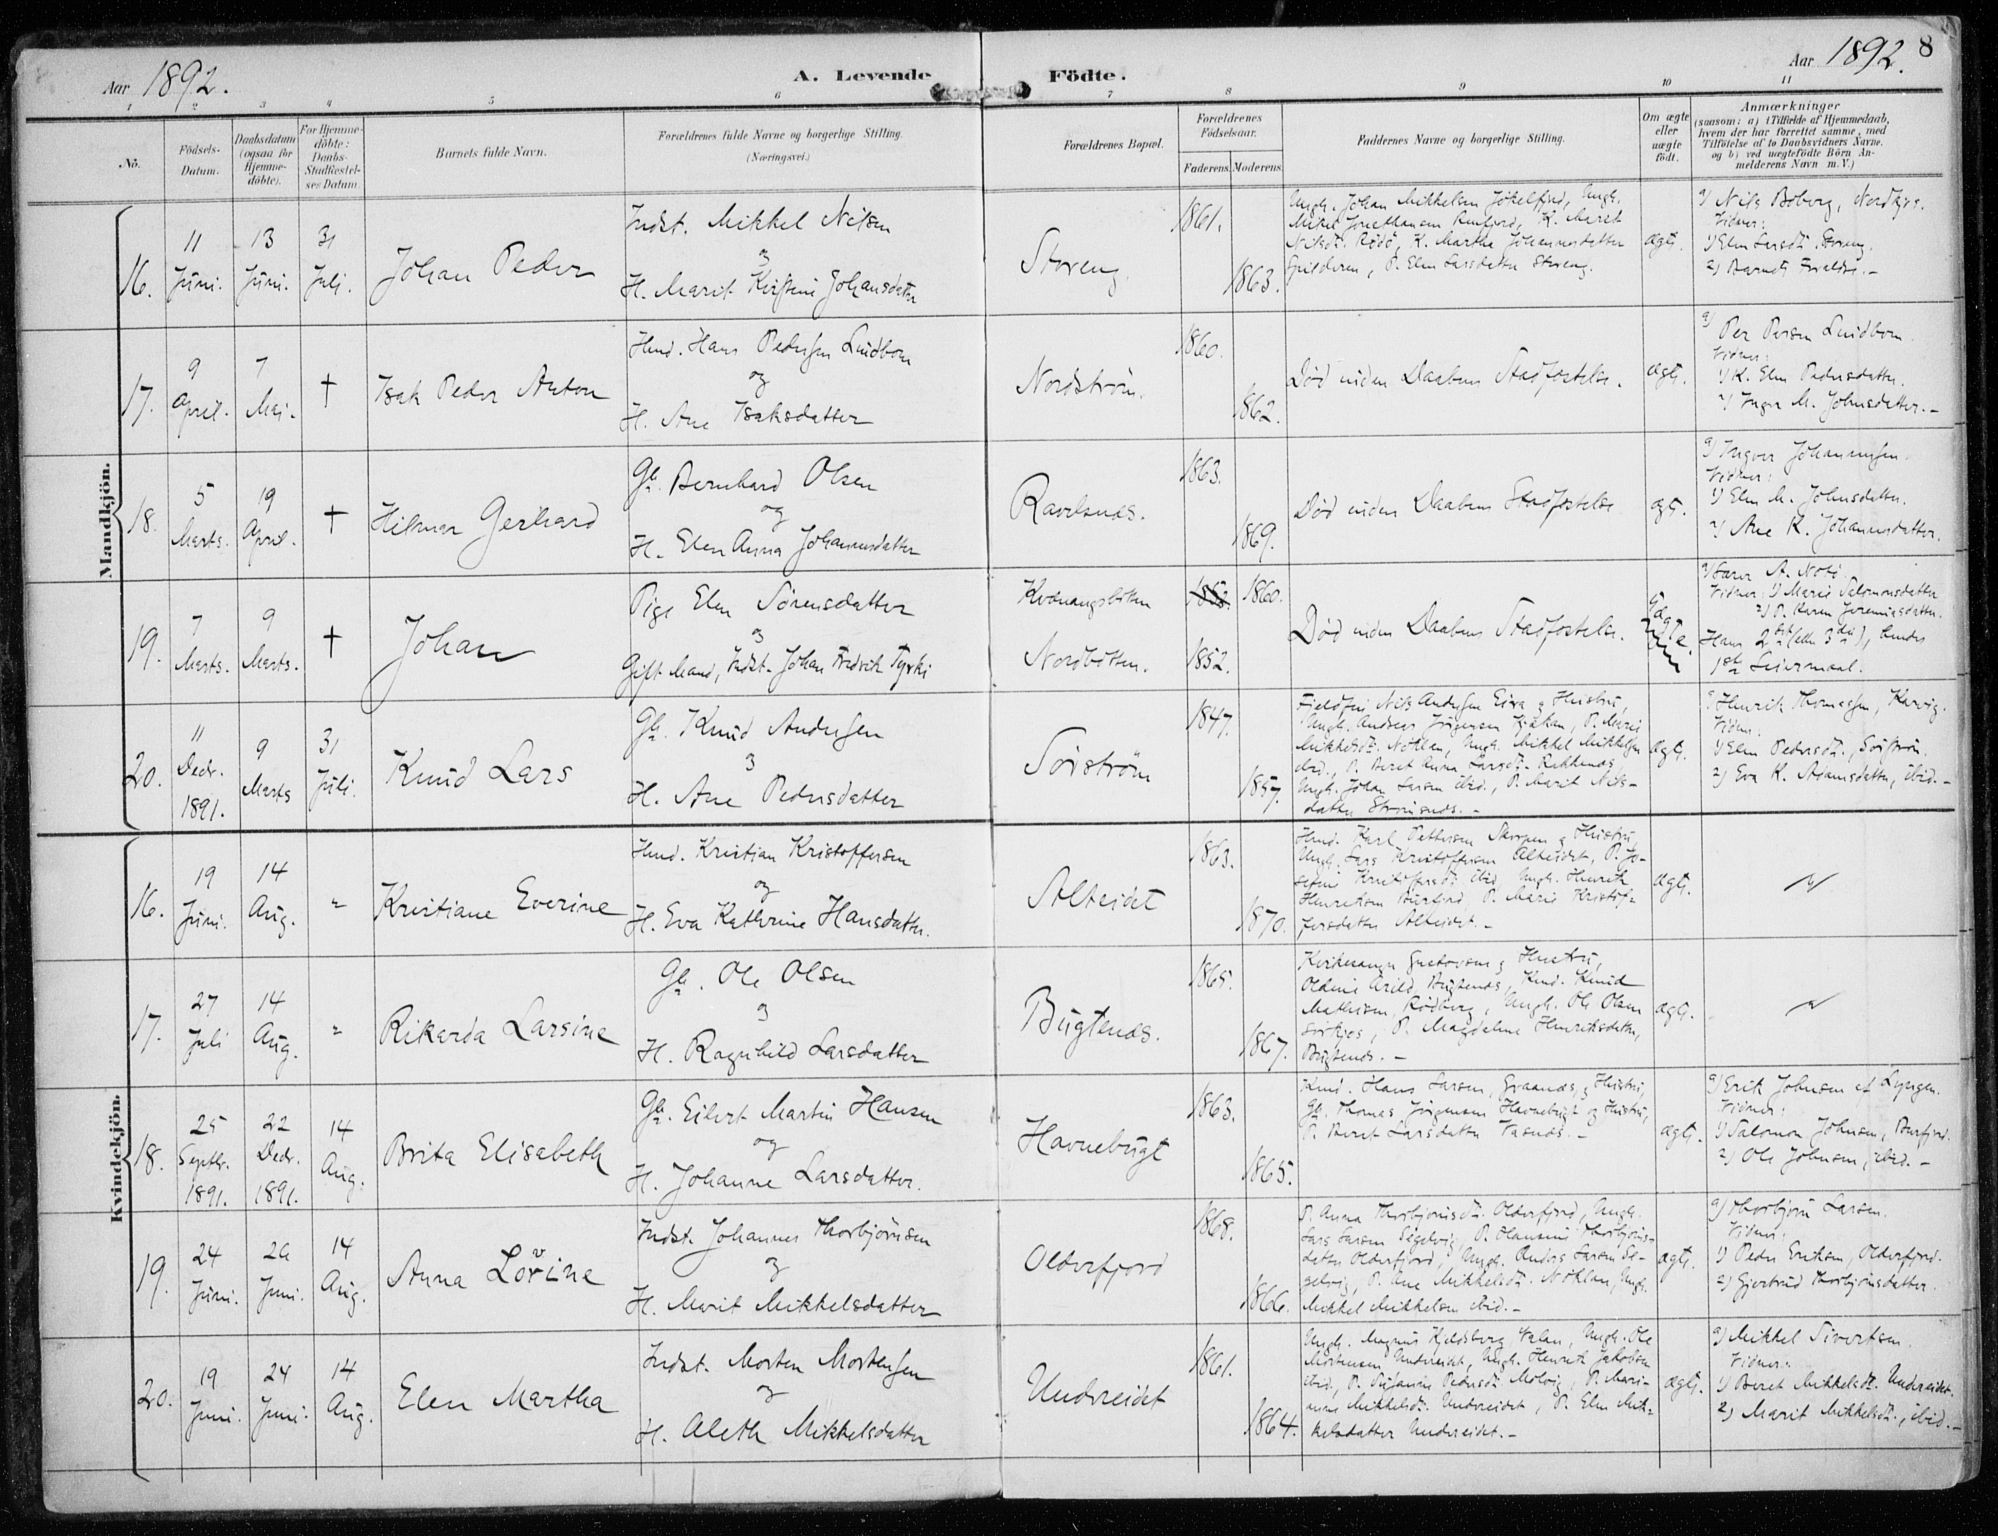 Aar 1892.
A. Levende Födte.
Aar 1892. 8
1 2 3 4 5 6 7 8 9 10 11
No.
Födsels-
Datum.
Daabsdatum
(ogsaa for
Hjemme-
döbte).
For Hjemme-
döbte:
Daabs-
Stadfæstel-
ses Datum.
Barnets fulde Navn.
Forældrenes fulde Navne og borgerlige Stilling.
(Næringsvei.)
Forældrenes Bopæl.
Forældrenes
Födselsaar.
Faderens. Moderens.
Faddernes Navne og borgerlige Stilling.
Om ægte
eller
uægte
födt.
Anmærkninger
(saasom: a) i Tilfælde af Hjemmedaab,
hvem der har forrettet samme, med
Tilföielse af to Daabsvidners Navne,
og b) ved uægtefödte Börn An-
melderens Navn m. V.)
Mandkjön.
16.
11
Juni.
13
Juni.
31
Juli.
Johan Peder
Indst. Mikkel Nilsen
og
H. Marit Kristine Johansdatter
Storeng.
1861.
1863.
Ungk. Johan Mikkelsen Jökelfjord, Ungk.
Mikkel Jonathansen Burfjord, K. Marit
Nilsdt. Rödö, K. Martha Johannesdatter
Spilderen, P. Elen Larsdatter Storeng.
ægte.
a) Nils Boberg, Nordkjos.
Vidner:
1) Elen Larsdt. Storeng.
2) Barnets Forældre. -
17.
9
April.
7
Mai.
†
Isak Peder Anton
Hmd. Hans Pedersen Lindbom
og
H. Ane Isaksdatter
Nordström.
1860.
1862.
Död inden Daabens Stadfæstelse.
ægte.
a) Per Persen Lindbom.
Vidner:
1) K. Elen Pedersdatter.
2) Inger M. Johnsdatter. -
18.
5
Marts.
19
April.
†
Hilmar Gerhard
Gb. Bernhard Olsen
og
H. Elen Anna Johannesdatter
Ravelsnæs.
1863.
1869.
Död inden Daabens Stadfæstelse
ægt.
a) Ingver Johannesen.
Vidner:
1) Elen M. Johnsdatter.
2) Ane K. Johannesdatter.
19.
7
Marts.
9
Marts.
†
Johan
Pige Elen Sörensdatter
og
Gift Mand, Indst. Johan Fredrik Tyrki
Kvænangsbotten
Nordbotten.
1860.
1852.
Död inden Daabens Stadfæstelse.
Uægte.
Vidner: 1) Marie Salomonsdatter
2) P. Karen Jeremiasdatter.
Hans 2det (eller 3die), hendes
1ste Leiermaal.
20.
11
Decbr.
1891.
9
Marts
31
Juli.
Knud Lars
Gb. Knud Andersen
og
H. Ane Pedersdatter
Sörström
1847.
1857.
Fjeldfin Nils Andersen Eira og Hustru,
Ungk. Andreas Jörgensen Kjækan, P. Marie
Mikkelsdt. Nöklan, Ungk. Mikkel Mikkelsen
ibid., P. Beret Anna Larsdt. Rakkenæs
Ungk. Johan Larsen ibid., P. Marit Nils-
datter Strömsnæs. -
ægte.
a) Henrik Thomassen, Karvig.
Vidner:
1) Elen Pedersdt., Sörström.
2) Eva K. Adamsdatter, ibid. -
Kvindekjön.
16.
19
Juni.
14
Aug.
"
Kristiane Everine
Hmd. Kristian Kristoffersen
og
H. Eva Katherine Hansdatter.
Alteidet
1863.
1870.
Hmd. Karl Pettersen Skorpen og Hustru,
Ungk. Lars Kristoffersen Alteidet, P. Jo-
sefine Kristoffersdt. ibid, Ungk. Henrik
Henriksen Burfjord, P. Marie Kristof-
fersdatter Alteidet. -
ægte.
17.
27
Juli
14
Aug.
"
Rikarda Larsine
Gb. Ole Olsen
og
H. Ragnhild Larsdatter
Bugtenæs.
1865.
1867.
Kirkesanger Gustavsen og Hustru,
Oldine Arild, Bugtenæs, Kmd. Knud
Mathisen, Rödberg, Ungk. Ole Olsen
Sörkjos, P. Magdalene Henriksdatter,
Bugtenæs. -
ægte.
18.
25
Septbr.
1891.
22
Decbr.
1891.
14
Aug.
Brita Elisabeth
Gb. Eilert Martin Hansen
og
H. Johanne Larsdatter.
Havnebugt
1863.
1865.
Kmd. Hans Larsen, Graanæs, og Hustru,
Gb. Thomas Jörgensen Havnebugt og Hustru,
P. Beret Larsdatter Vasnæs. -
ægte.
a) Erik Johnsen af Lyngen.
Vidner:
1) Salomon Johnsen, Burfjord.
2) Ole Johnsen, ibid. -
19.
24
Juni.
26
Juni.
14
Aug.
Anna Lovine
Indst. Johannes Thorbjörnsen
og
H. Marit Mikkelsdatter
Olderfjord
1868.
1866.
P. Anna Thorbjörnsdt. Olderfjord, Ungk.
Lars Larsen Segelvig, P. Hansine Thorbjörns-
datter Olderfjord, Ungk. Anders Larsen Se-
gelvig, P. Ane Mikkelsdt. Nöklan, Ungk.
Mikkel Mikkelsen ibid. -
ægte.
a) Thorbjörn Larsen.
Vidner:
1) Peder Eriksen, Olderfjord.
2) Gjertrud Thorbjörnsdatter.
20.
19
Juni.
24
Juni.
14
Aug.
Elen Martha
Indst. Morten Mortensen
og
H. Aleth Mikkelsdatter
Undereidet
1861.
1864.
Ungk. Magnus Kjeldsberg Valan, Ungk. Ole
Mortensen Undereidet, Ungk. Henrik Jakobsen
ibid., P. Susanne Pedersdt. Molvig, P. Mari-
anne Mikkelsdt. Undereidet, P. Elen Mik-
kelsdatter Undereidet. -
ægte.
a) Mikkel Sivertsen.
Vidner:
1) Beret Mikkelsdt. Undereidet.
2) Marit Mikkelsdt., ibid. -